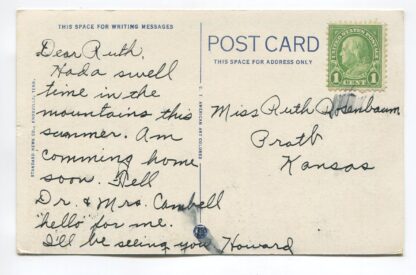 THIS SPACE FOR WRITING MESSAGES
Dear Ruth,
Had a swell
time in the
mountains this
summer. Am
comming home
soon. Tell
Dr. & Mrs. Cambell
"hello" for me.
I'll be seeing you Howard
STANDARD NEWS CO., KNOXVILLE, TENN.
AMERICAN ART COLORED
POST CARD
THIS SPACE FOR ADDRESS ONLY
UNITED STATES POSTAGE
1 CENT 1
Miss Ruth Rosenbaum
Pratt
Kansas